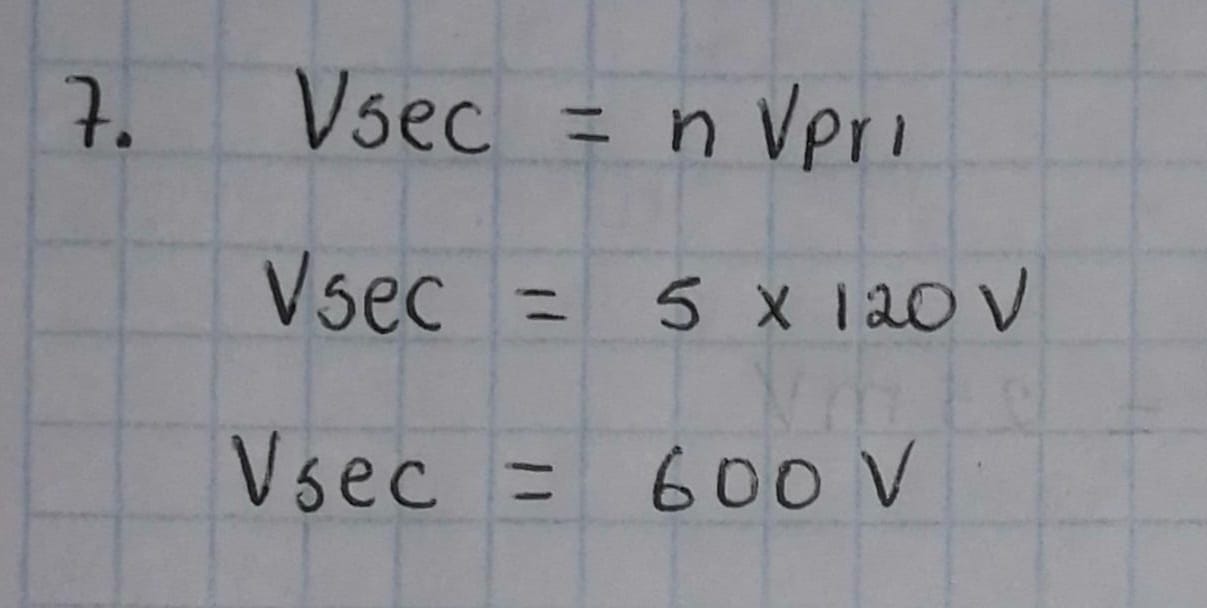 7. Vsec = n Vpri
Vsec = 5 x 120 V
Vsec = 600 V